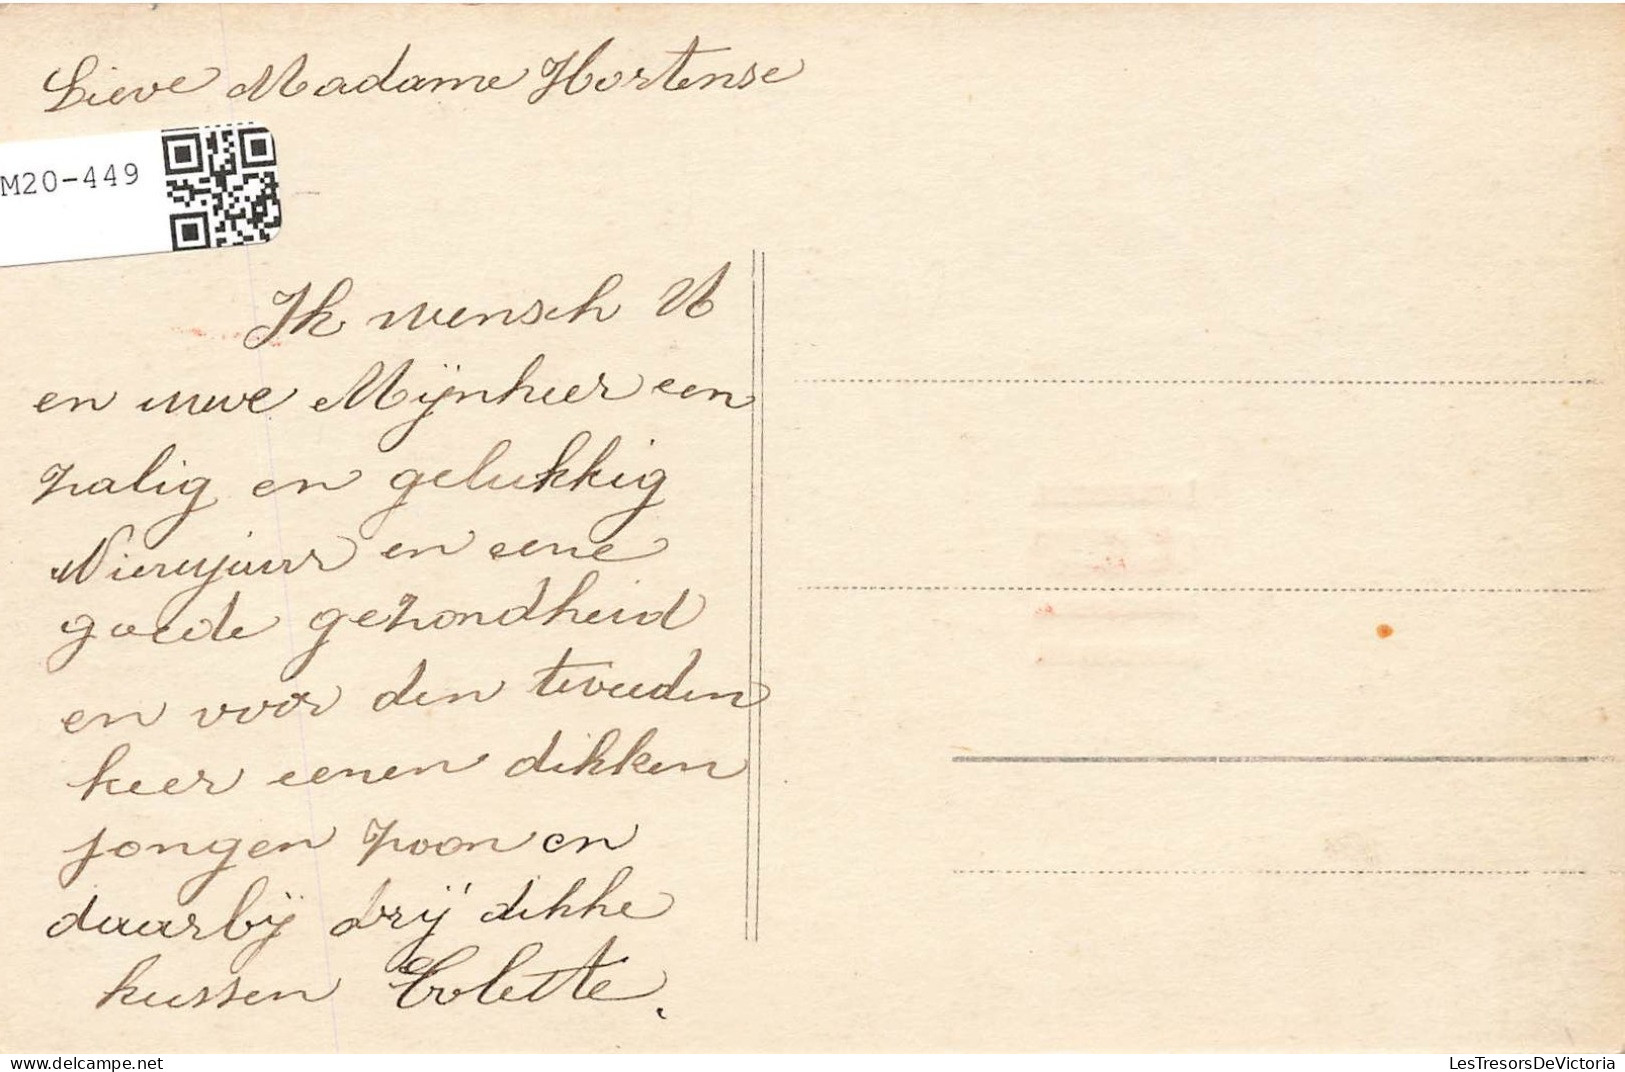 Lieve Madame Hortense
M20-449
Ik wensch U
en uwe Mijnheer een
zalig en gelukkig
Nieuwjaar en eene
goede gezondheid
en voor den tweeden
keer eenen dikken
jongen zoon en
daarbij drij dikke
kussen Colette.
delcampe.net
LesTresorsDeVictoria